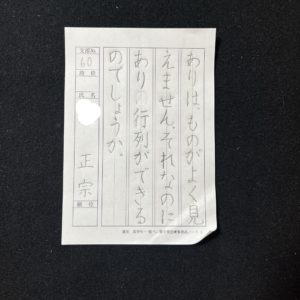 ありは、ものがよく見
えません。それなのに
ありの行列ができる
のでしょうか。
支部No.
60
段位
氏名
正宗
順位